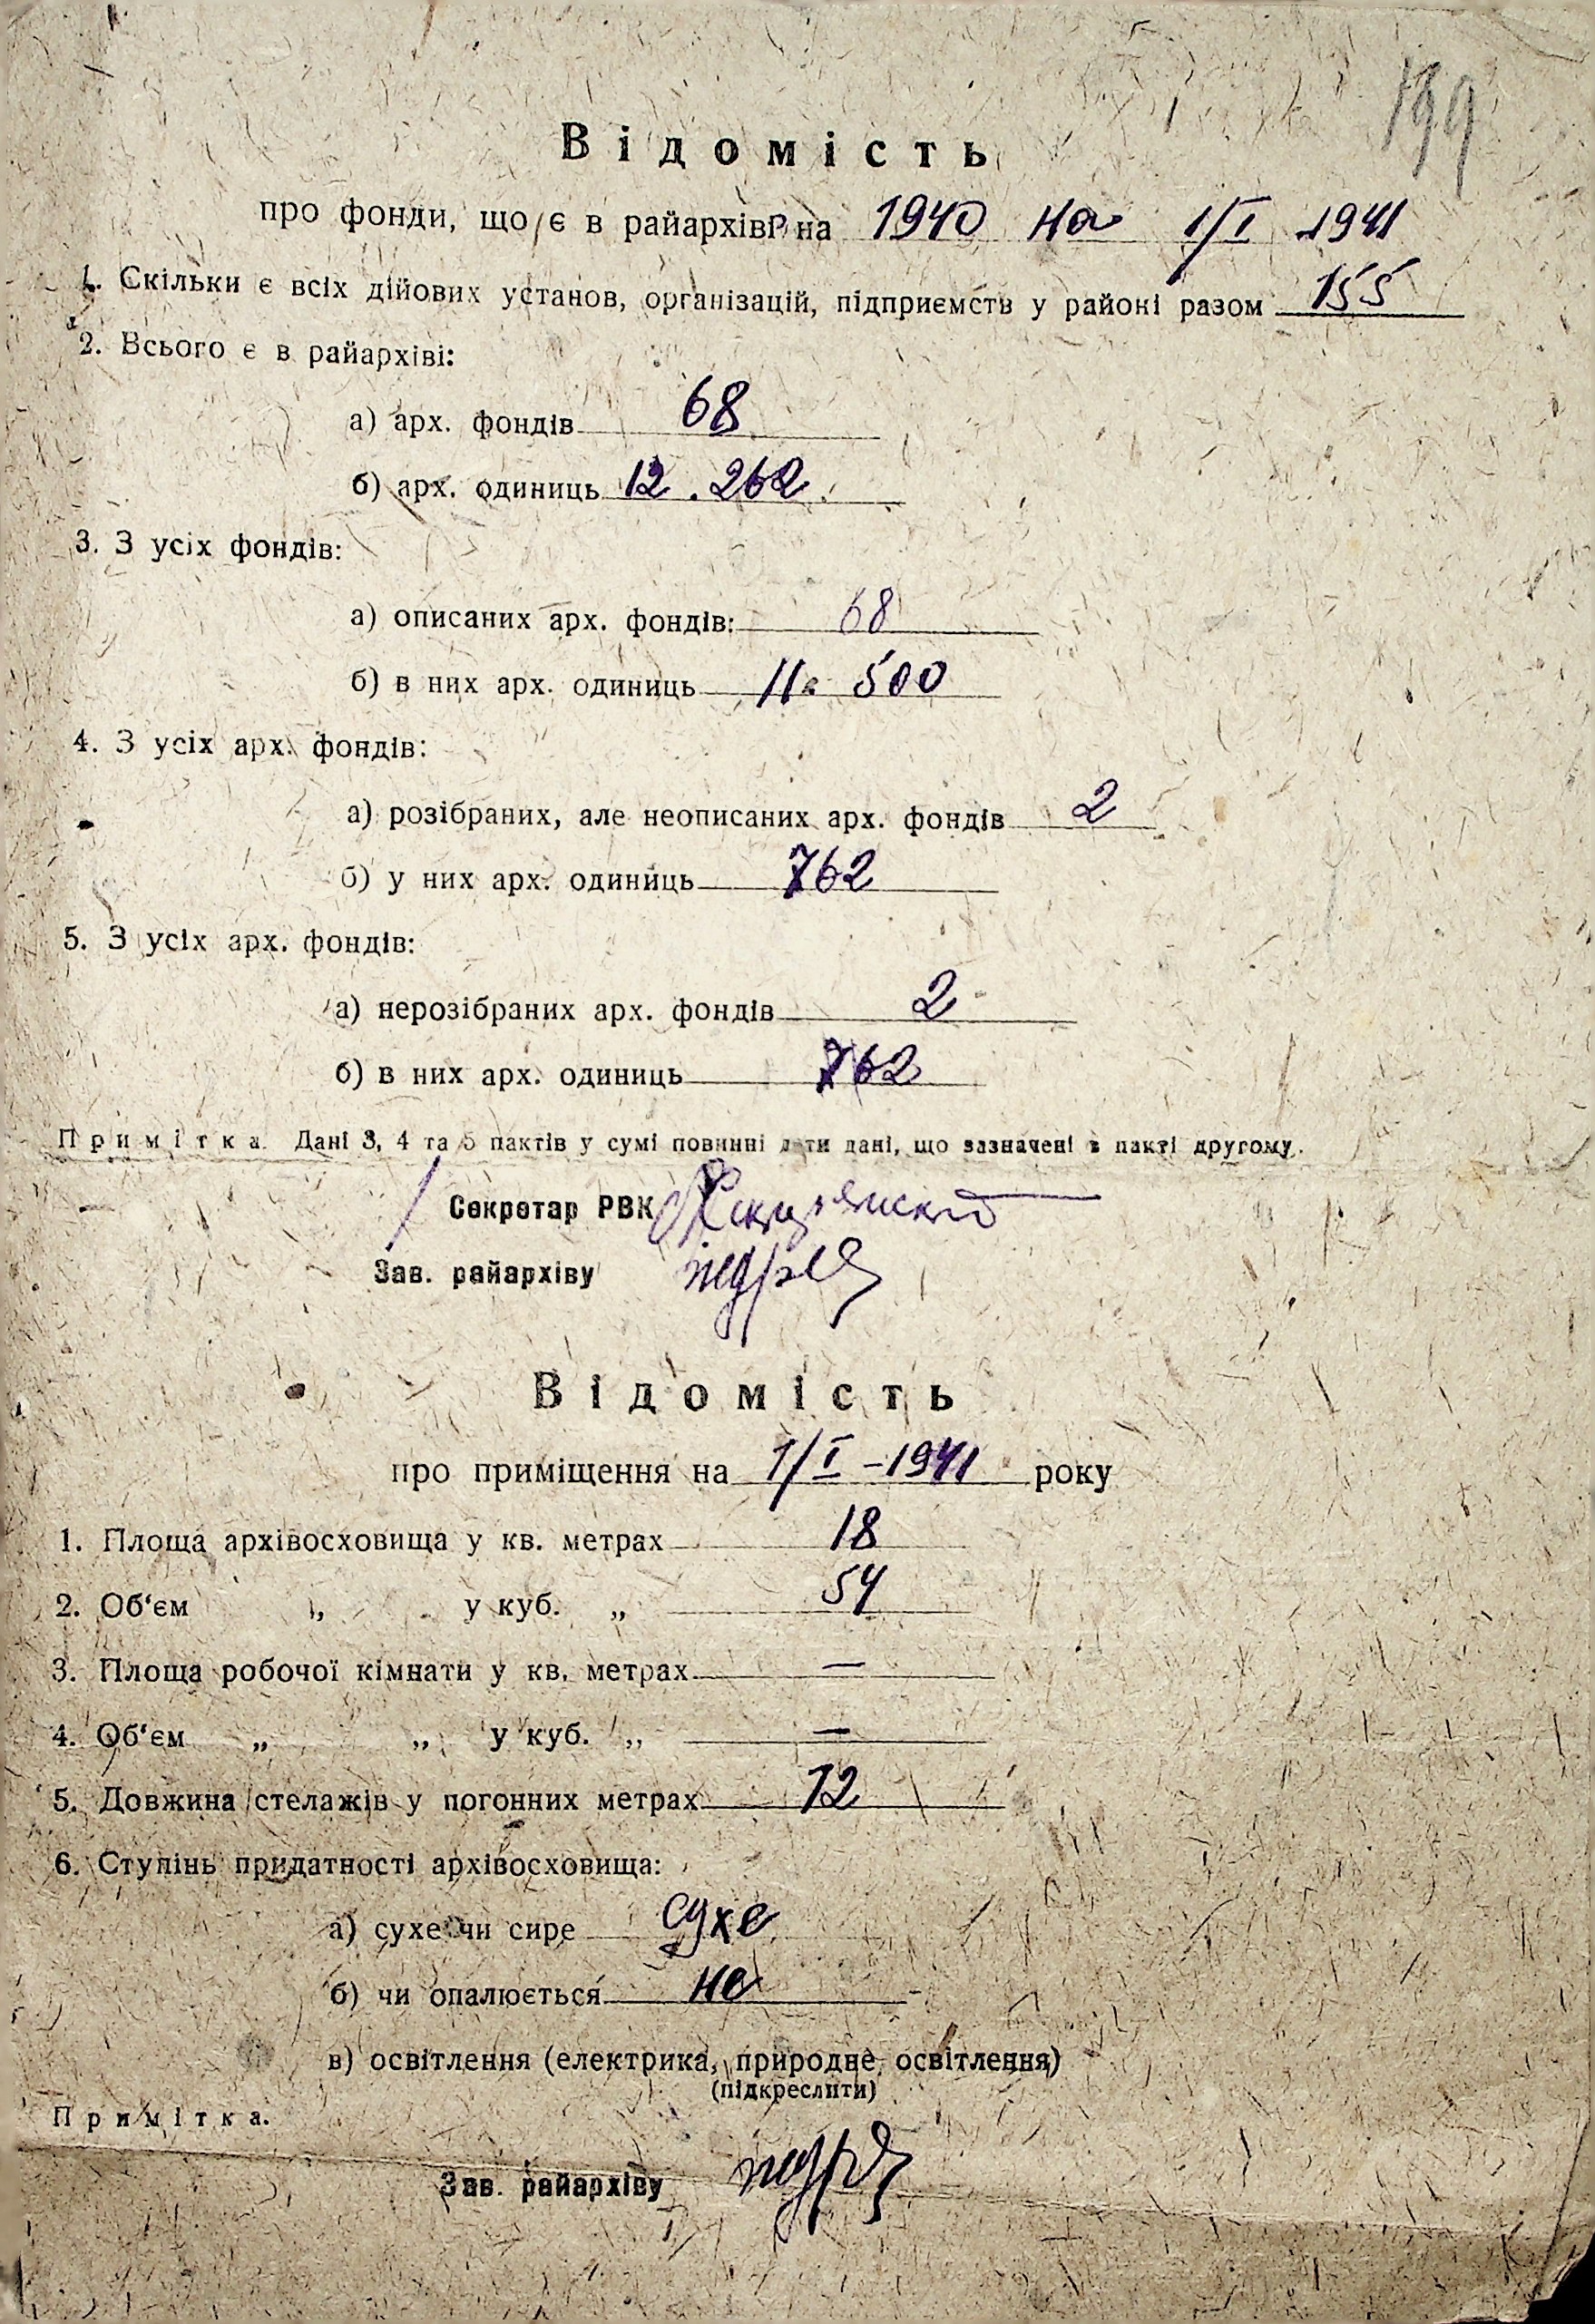 199
Відомість
про фонди, що є в райархіві на 1940 на 1/I 1941
1. Скільки є всіх дійових установ, організацій, підприємств у районі разом 155
2. Всього є в райархіві:
а) арх. фондів 68
б) арх. одиниць 12.262.
3. З усіх фондів:
а) описаних арх. фондів: 68
б) в них арх. одиниць 11. 500
4. З усіх арх. фондів:
а) розібраних, але неописаних арх. фондів 2
б) у них арх. одиниць 762
5. З усіх арх. фондів:
а) нерозібраних арх. фондів 2
б) в них арх. одиниць 762
Примітка. Дані 3, 4 та 5 пактів у сумі повинні дати дані, що зазначені в пакті другому.
Секретар РВК
Зав. райархіву
Відомість
про приміщення на 1/I -1941 року
1. Площа архівосховища у кв. метрах 18
2. Об'єм „ у куб. „ 54
3. Площа робочої кімнати у кв. метрах —
4. Об'єм „ „ у куб. „ —
5. Довжина стелажів у погонних метрах 12
6. Ступінь придатності архівосховища:
а) сухе чи сире сухе
б) чи опалюється не
в) освітлення (електрика, природне освітлення)
(підкреслити)
Примітка.
Зав. райархіву